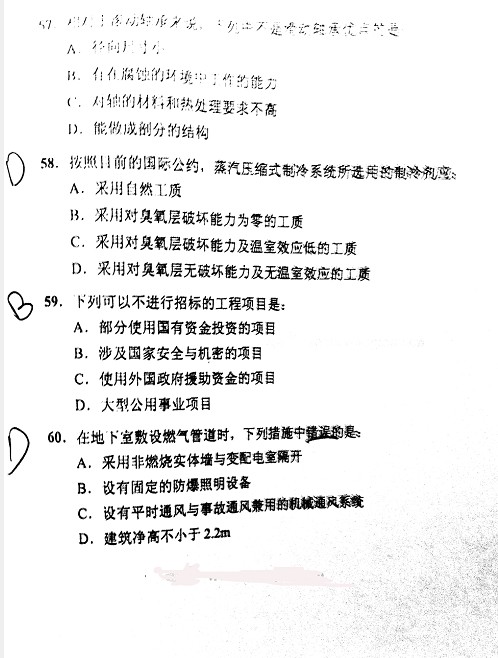 57. 相对于滚动轴承来说，下列中不是滑动轴承优点的是
A．径向尺寸小
B．有在腐蚀的环境中工作的能力
C．对轴的材料和热处理要求不高
D．能做成剖分的结构
D 58．按照目前的国际公约，蒸汽压缩式制冷系统所选用的制冷剂应：
A．采用自然工质
B．采用对臭氧层破坏能力为零的工质
C．采用对臭氧层破坏能力及温室效应低的工质
D．采用对臭氧层无破坏能力及无温室效应的工质
B 59．下列可以不进行招标的工程项目是：
A．部分使用国有资金投资的项目
B．涉及国家安全与机密的项目
C．使用外国政府援助资金的项目
D．大型公用事业项目
D 60．在地下室敷设燃气管道时，下列措施中错误的是：
A．采用非燃烧实体墙与变配电室隔开
B．设有固定的防爆照明设备
C．设有平时通风与事故通风兼用的机械通风系统
D．建筑净高不小于 2.2m